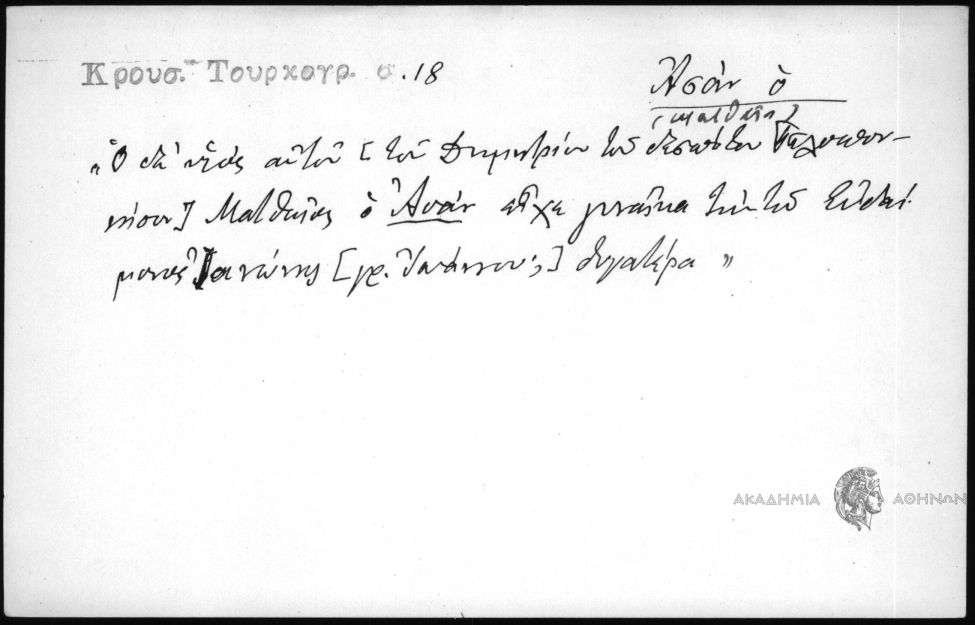 Κρουσ. Τουρκογρ. σ. 18
Ἀσάν ὁ
(Ματθαῖος)
„Ὁ δὲ υἱὸς αὐτοῦ [τοῦ Δημητρίου τοῦ δεσπότου Πελοπον-
νήσου] Ματθαῖος ὁ Ἀσάν εἶχε γυναῖκα τὴν τοῦ Εὐδαί-
μονος Ἰανώνης [γρ. Ἰωάννου;] θυγατέρα „
ΑΚΑΔΗΜΙΑ ΑΘΗΝΩΝ